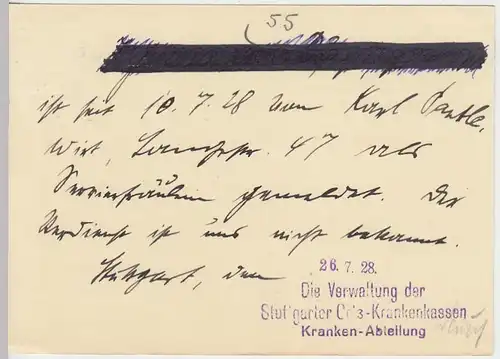 55
ist seit 10.7.28 von Karl
Wirt, Langestr. 47 als
Servierfräulein gemeldet. Der
Verdienst ist uns nicht bekannt.
Stuttgart, den
26.7.28.
Die Verwaltung der
Stuttgarter Orts-Krankenkassen
Kranken-Abteilung